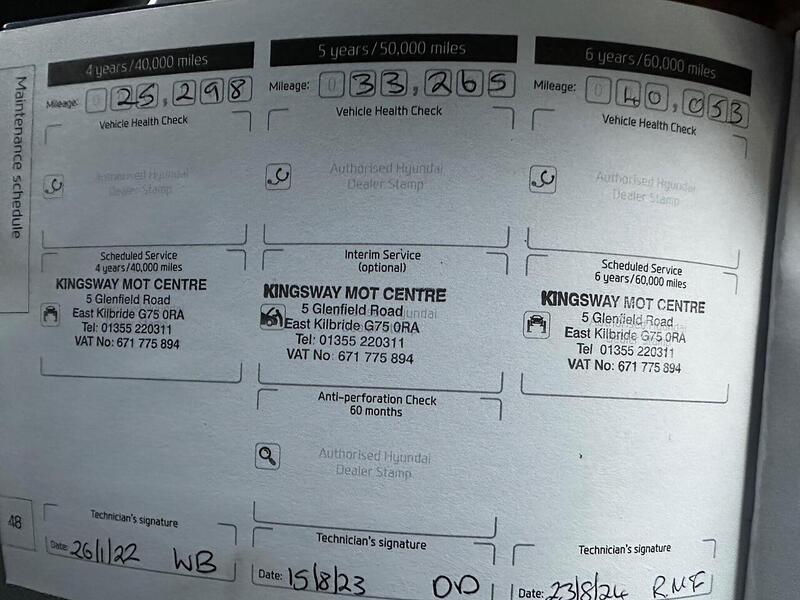 Maintenance schedule
4 years/40,000 miles
Mileage: 0 25,298
Vehicle Health Check
Authorised Hyundai
Dealer Stamp
Scheduled Service
4 years/40,000 miles
KINGSWAY MOT CENTRE
5 Glenfield Road
East Kilbride G75 0RA
Tel: 01355 220311
VAT No: 671 775 894
Technician's signature
Date: 26/1/22 WB
5 years/50,000 miles
Mileage: 0 33,265
Vehicle Health Check
Authorised Hyundai
Dealer Stamp
Interim Service
(optional)
KINGSWAY MOT CENTRE
5 Glenfield Road
East Kilbride G75 0RA
Tel: 01355 220311
VAT No: 671 775 894
Anti-perforation Check
60 months
Authorised Hyundai
Dealer Stamp
Technician's signature
Date: 15/8/23 DD
6 years/60,000 miles
Mileage: 0 40,053
Vehicle Health Check
Authorised Hyundai
Dealer Stamp
Scheduled Service
6 years/60,000 miles
KINGSWAY MOT CENTRE
5 Glenfield Road
East Kilbride G75 0RA
Tel 01355 220311
VAT No: 671 775 894
Technician's signature
Date: 23/8/24 R.M.F
48